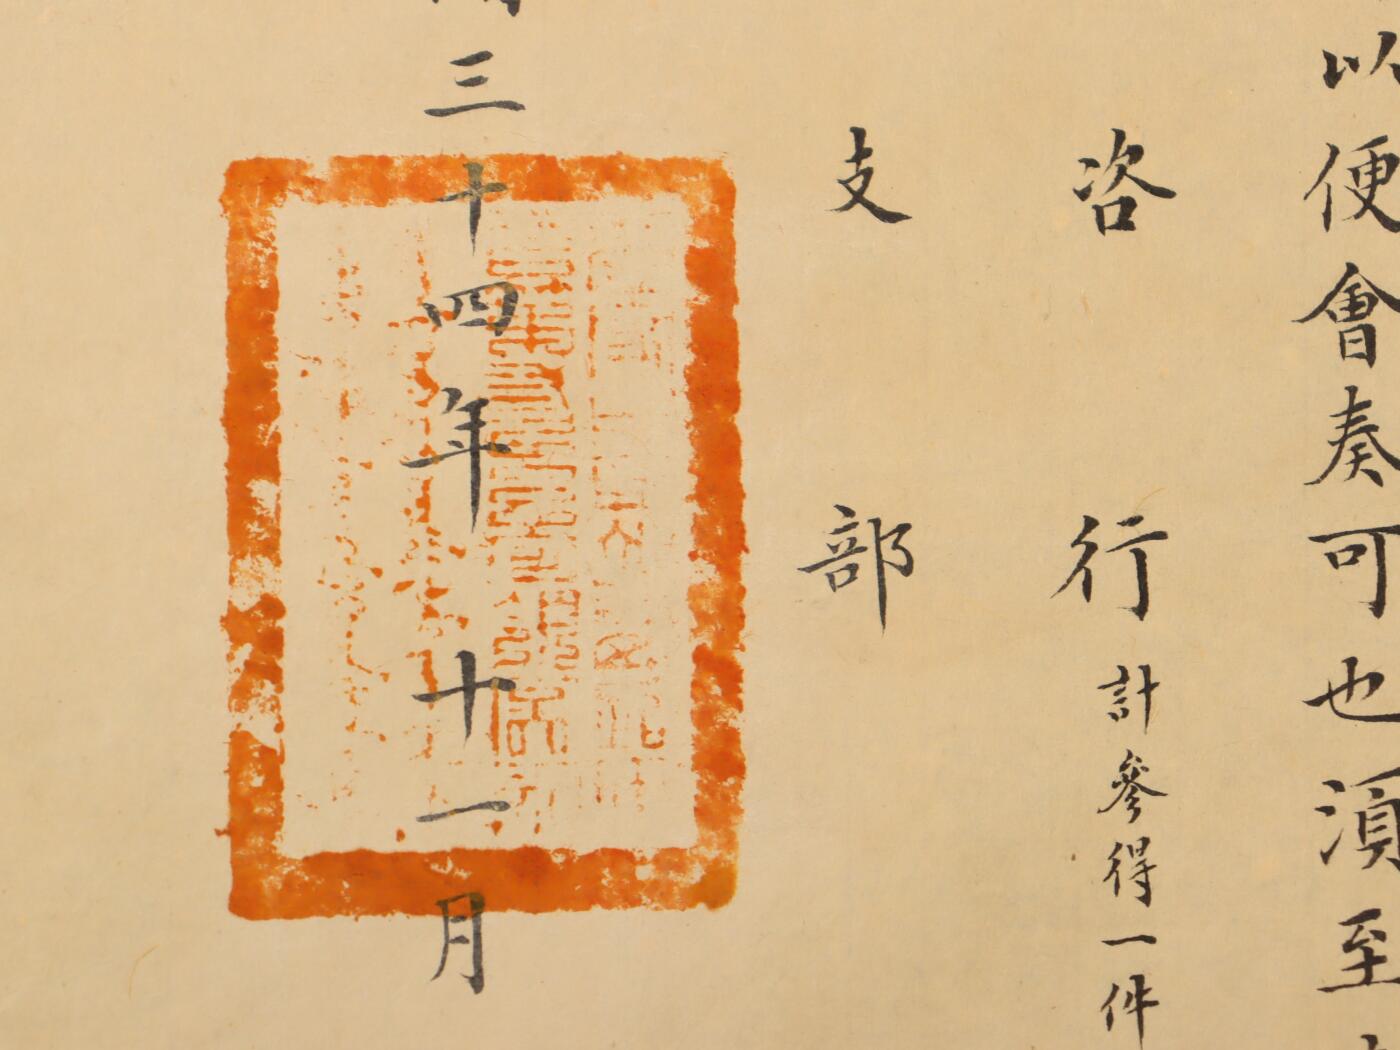 以便會奏可也須至
咨
行計參得一件
支
部
三十四年十一月